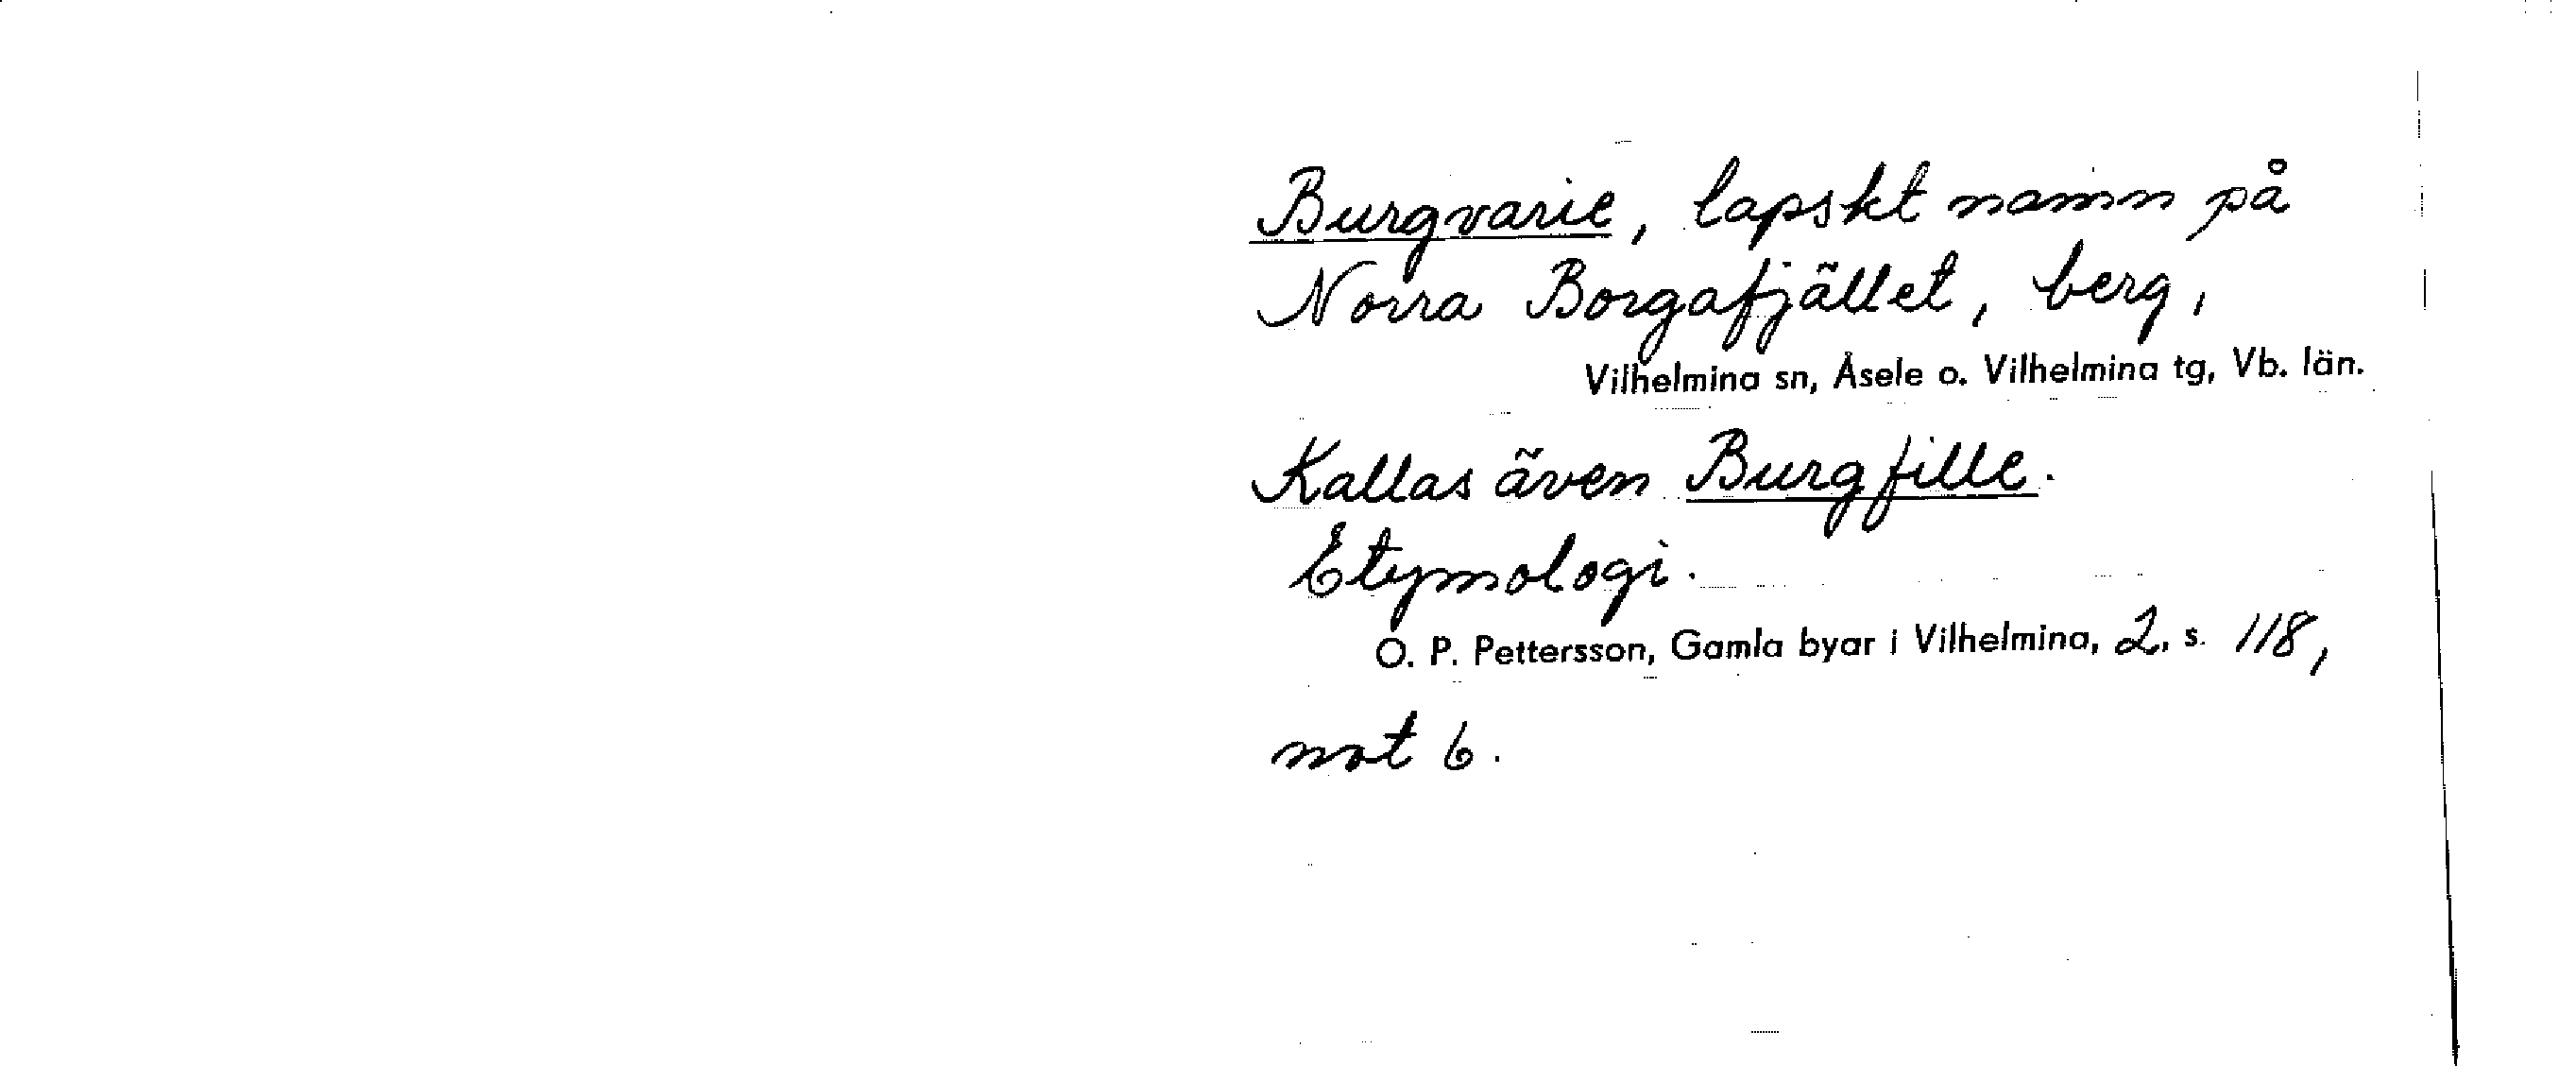 Burgvarie, lapskt namn på
Norra Borgafjället, berg,
Vilhelmina sn, Åsele o. Vilhelmina tg, Vb. län.
Kallas även Burgfille.
Etymologi.
O. P. Pettersson, Gamla byar i Vilhelmina, 2, s. 118,
not 6.